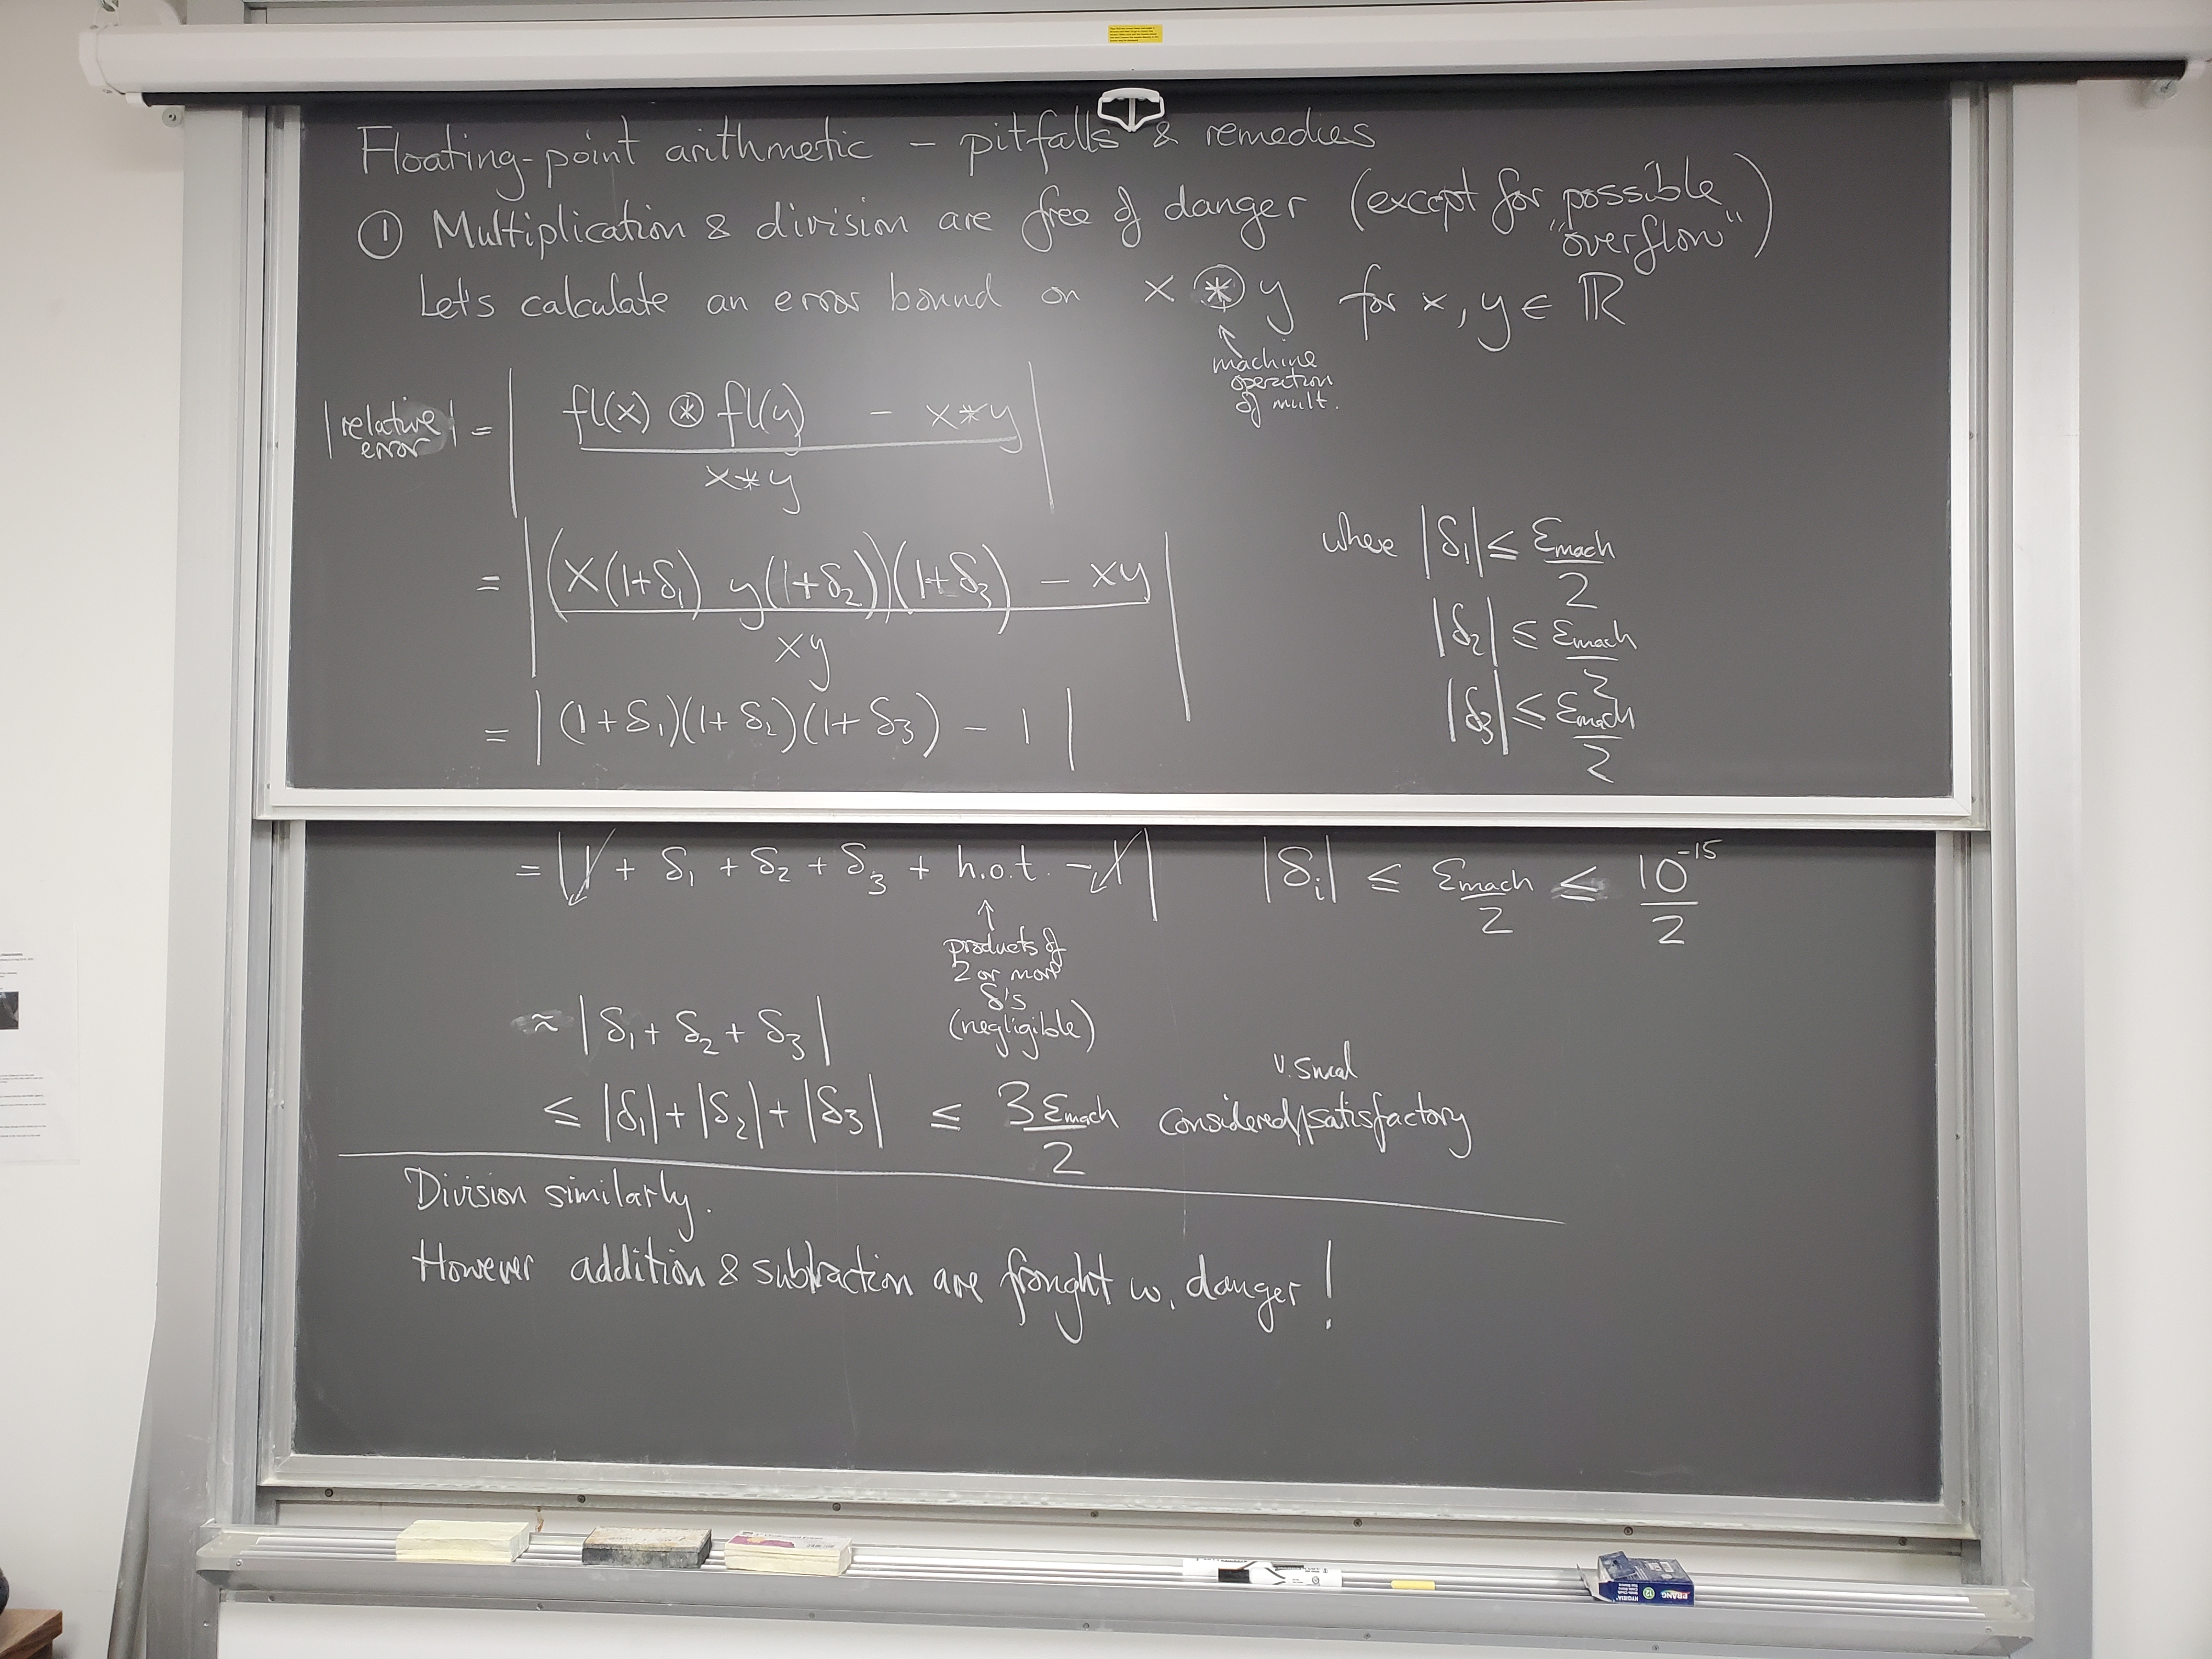 Floating-point arithmetic – pitfalls & remedies
① Multiplication & division are free of danger (except for possible "overflow")
Let's calculate an error bound on x ⊛ y for x, y ∈ ℝ
↑
machine
operation
of mult.
|relative error| = | (fl(x) ⊛ fl(y) – x*y) / (x*y) |
= | ((x(1+δ₁) y(1+δ₂))(1+δ₃) – xy) / (xy) |
where |δ₁| ≤ εmach/2
|δ₂| ≤ εmach/2
|δ₃| ≤ εmach/2
= | (1+δ₁)(1+δ₂)(1+δ₃) – 1 |
= | 1 + δ₁ + δ₂ + δ₃ + h.o.t. – 1 | |δᵢ| ≤ εmach/2 ≤ 10⁻¹⁵/2
↑
products of
2 or more
δ's
(negligible)
≈ | δ₁ + δ₂ + δ₃ |
≤ |δ₁| + |δ₂| + |δ₃| ≤ 3εmach/2 considered/satisfactory
v. small
Division similarly.
However addition & subtraction are fraught w. danger!
PRANG